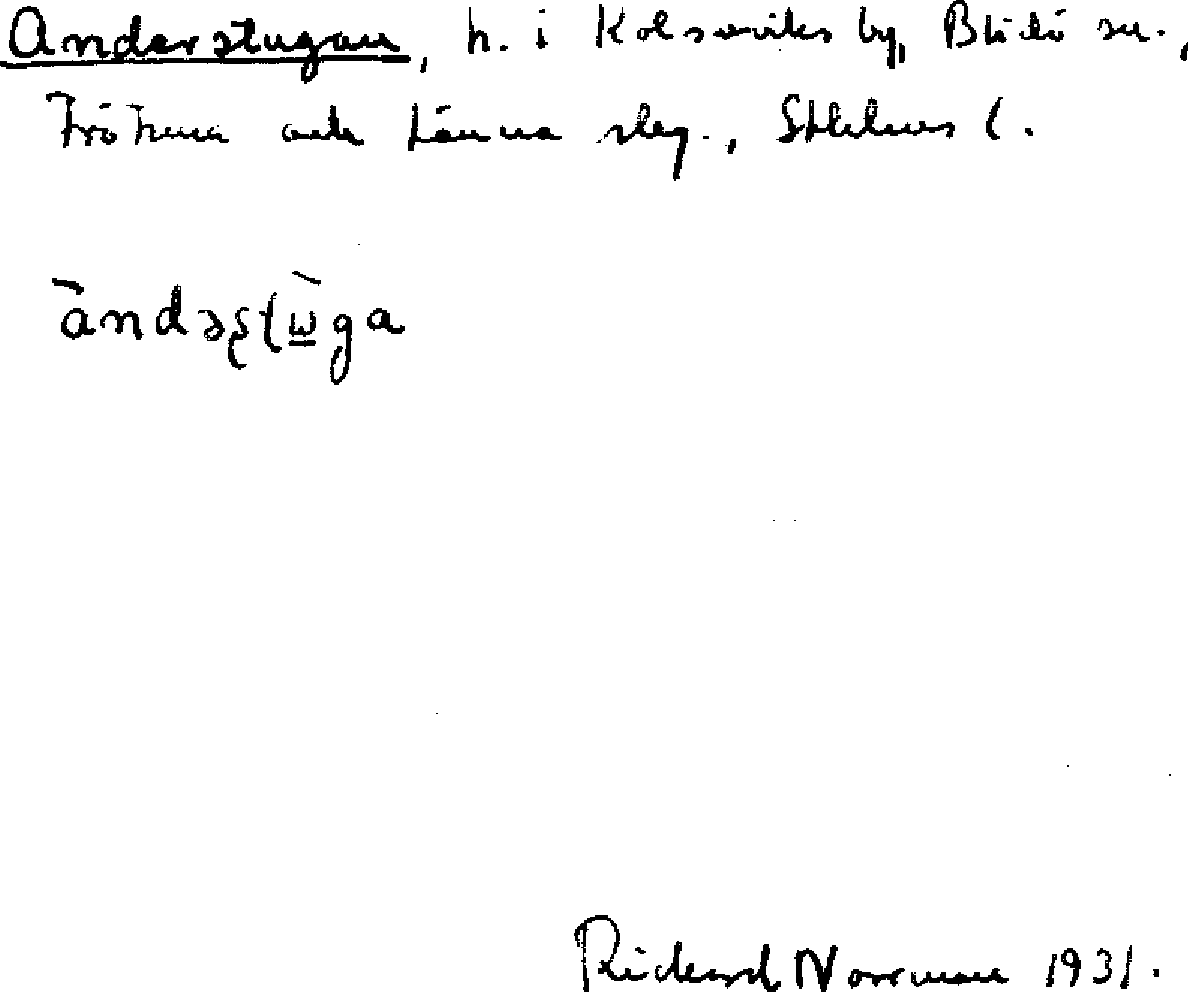 Anderstugan, h. i Kolsviks by, Blidö sn.,
Frötuna och Länna skg., Sthlms l.
àndəʂʈɯ̲̀ga
Rickard Norrman 1931.